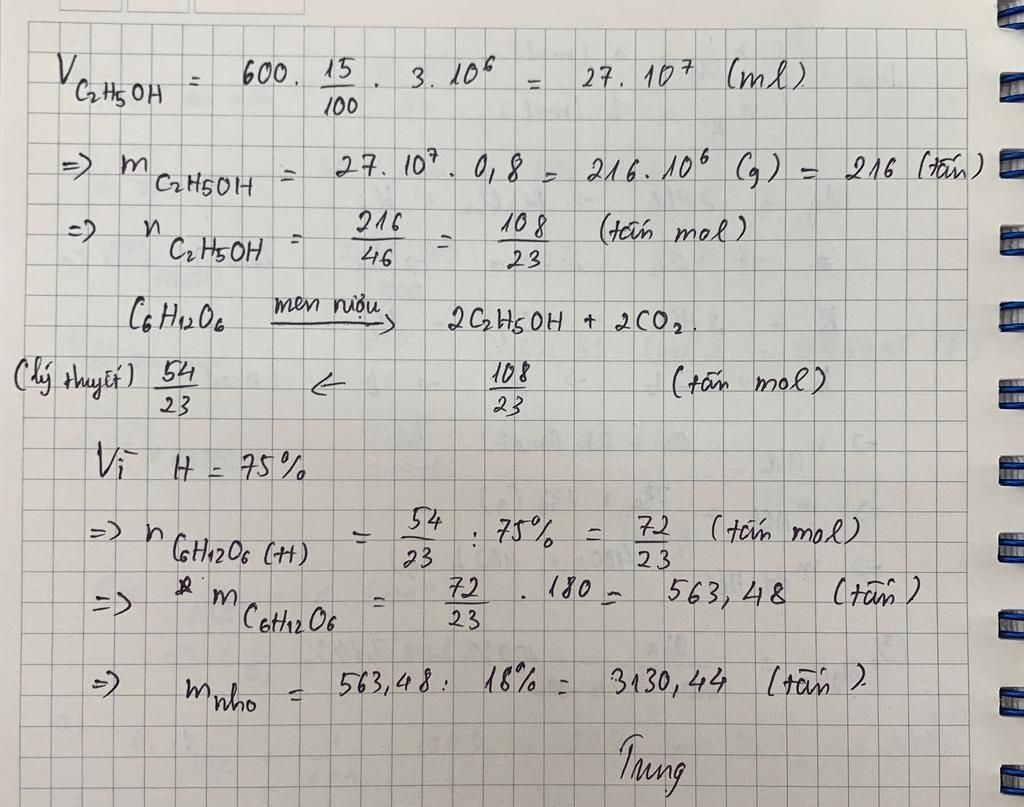 V C₂H₅OH = 600 . 15/100 . 3 . 10⁶ = 27 . 10⁷ (ml)
=> m C₂H₅OH = 27 . 10⁷ . 0,8 = 216 . 10⁶ (g) = 216 (tấn)
=> n C₂H₅OH = 216/46 = 108/23 (tấn mol)
C₆H₁₂O₆ men rượu → 2C₂H₅OH + 2CO₂.
(lý thuyết) 54/23 ← 108/23 (tấn mol)
Vì H = 75%
=> n C₆H₁₂O₆ (tt) = 54/23 : 75% = 72/23 (tấn mol)
=> m C₆H₁₂O₆ = 72/23 . 180 = 563,48 (tấn)
=> m nho = 563,48 : 18% = 3130,44 (tấn).
Trung